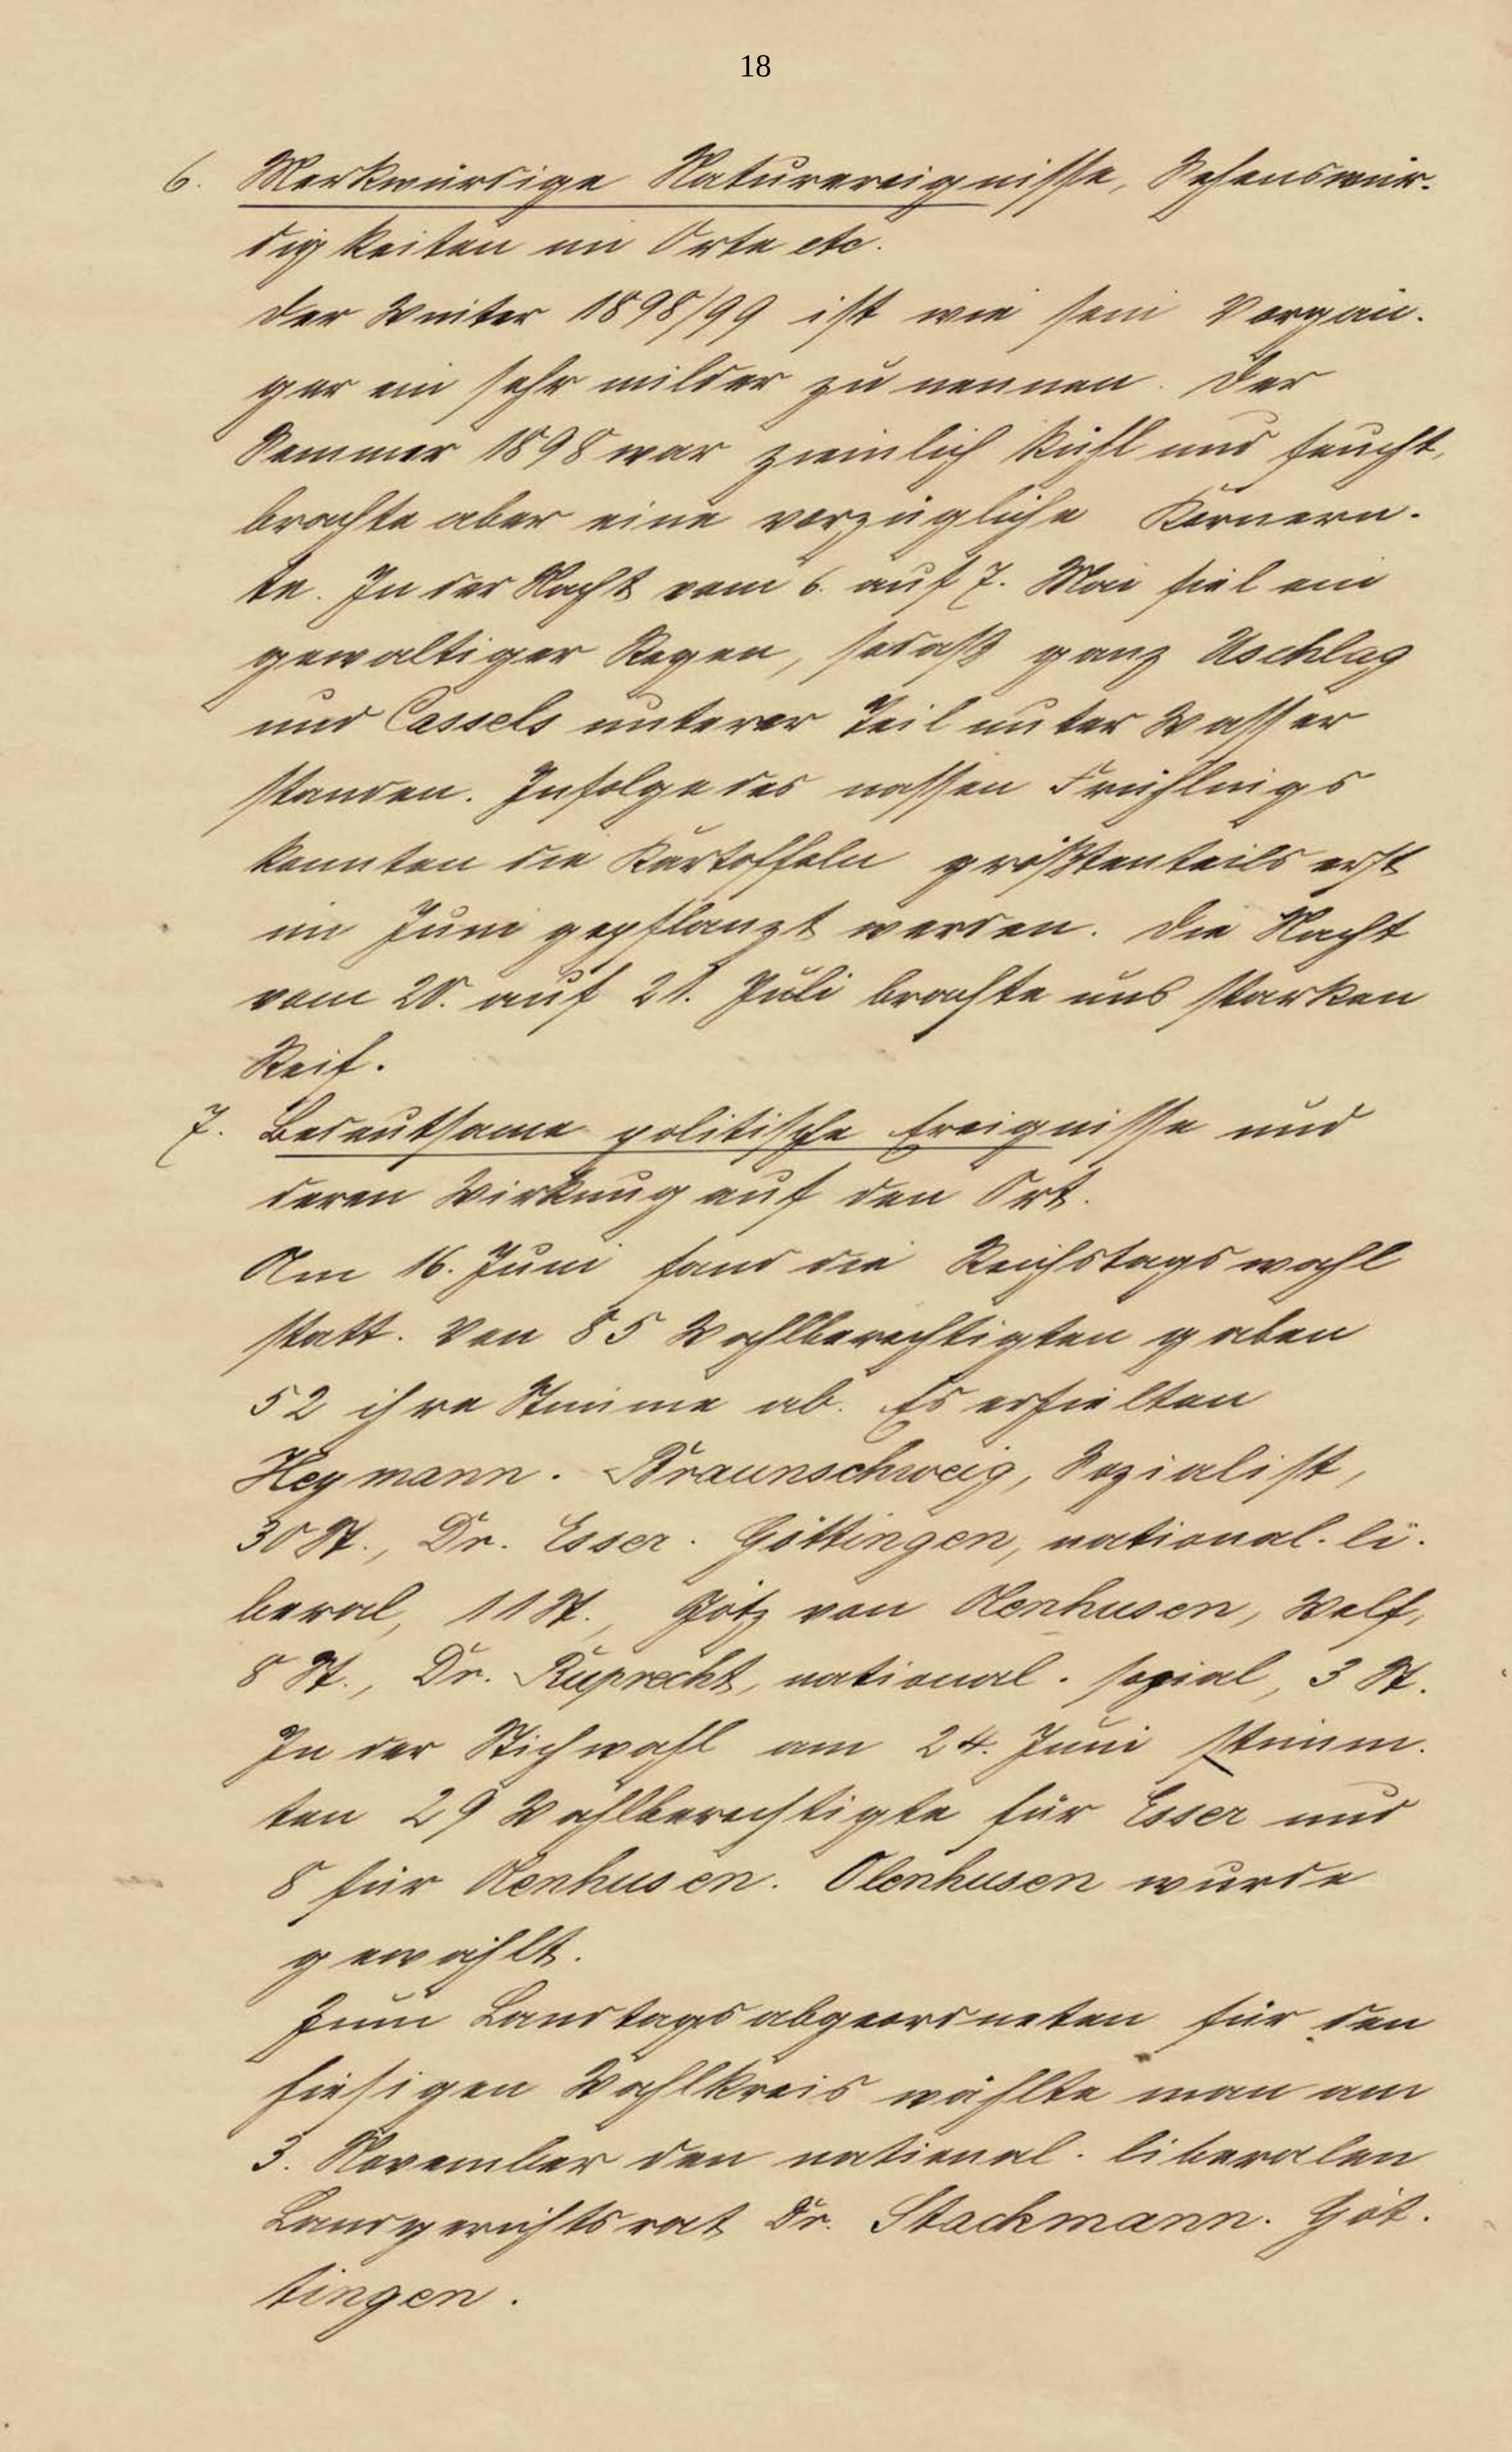 18
6. Merkwürdige Naturereignisse, Sehenswür-
digkeiten im Orte etc.
Der Winter 1898/99 ist wie sein Vorgän-
ger ein sehr milder zu nennen. Der
Sommer 1898 war ziemlich kühl und feucht,
brachte aber eine vorzügliche Körnern-
te. In der Nacht vom 6. auf 7. Mai fiel ein
gewaltiger Regen, sodaß ganz Uschlag
und Cassels unterer Teil unter Wasser
standen. Infolge des nassen Frühlings
konnten die Kartoffeln größtenteils erst
im Juni gepflanzt werden. Die Nacht
vom 20. auf 21. Juli brachte uns starken
Reif.
7. Bedeutsame politische Ereignisse und
deren Wirkung auf den Ort.
Am 16. Juni fand die Reichstagswahl
statt. Von 85 Wahlberechtigten gaben
52 ihre Stimme ab. Es erhielten
Heymann-Braunschweig, Sozialist,
30 St., Dr. Esser-Göttingen, national-li-
beral, 11 St., Götz von Olenhusen, Welf,
8 St., Dr. Ruprecht, national-sozial, 3 St.
In der Stichwahl am 24. Juni stimm-
ten 29 Wahlberechtigte für Esser und
8 für Olenhusen. Olenhusen wurde
gewählt.
Zum Landtagsabgeordneten für den
hiesigen Wahlkreis wählte man am
3. November den national-liberalen
Landgerichtsrat Dr. Stackmann-Göt-
tingen.